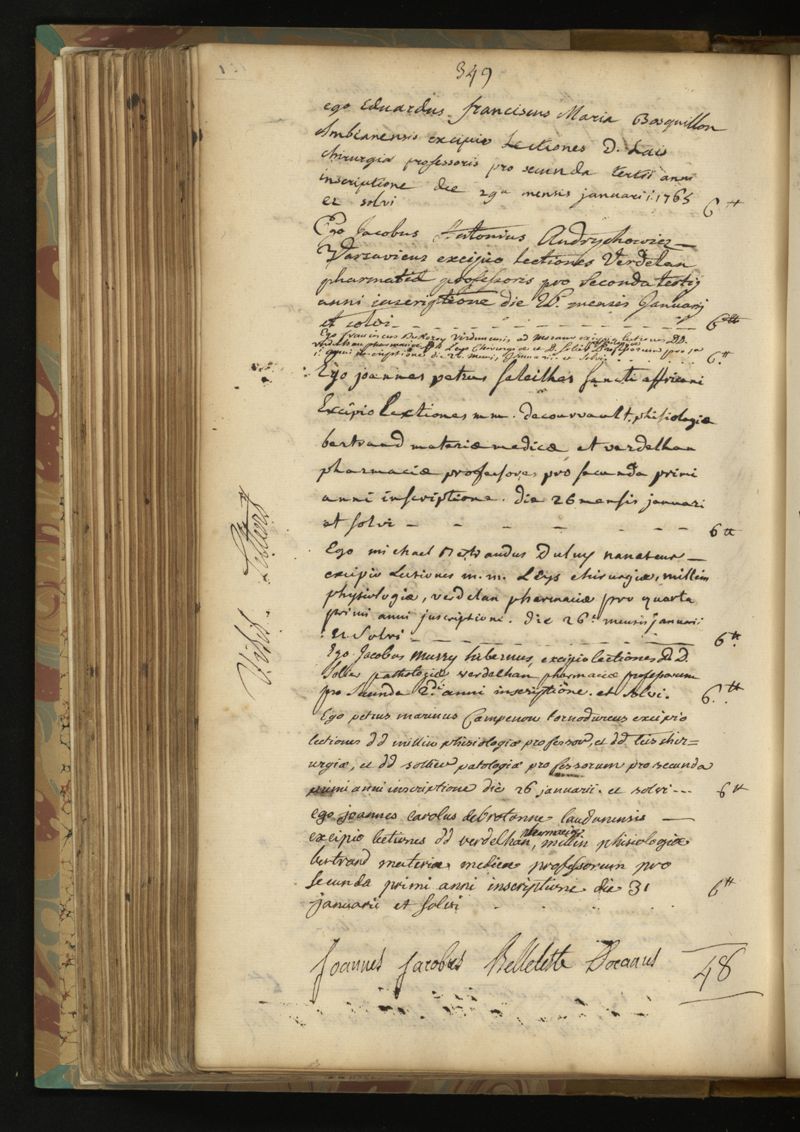 349
ego Eduardus franciscus Maria Bosquillon
Ambianensis excipio Lectiones D. Lais
chirurgia professoris pro secunda tertii anni
inscriptione die 29a mensis januarii 1765
et solvi 6tt
Ego Jacobus Antonius Andrychowicz
Varsavicus excipio lectiones Verdelan
pharmatiæ professoris pro Secunda tertij
anni inscriptione die 26. mensis Januarij
et solvi 6tt
Ego franciscus Virdunensis, ad
verdelhan pharmaciæ professorum pro
anni inscriptione die 26. mensis Januarii. et Solvi 6tt
Ego joannes petrus saleilhes sancti affricani
Excipio Lectiones m.m. phisiologiæ
bertrand materiæ medicæ et verdelhan
pharmaciæ professores pro secunda primi
anni inscriptione. die 26 mensis januari
et solvi 6tt
Ego michael Dulny
excipio Lectiones m.m. Leys chirurgiæ, millin
physiologiæ, verdelan pharmaciæ pro quarta
primi anni juscriptione. die 26. mensis januari
et Solvi 6tt
Ego Jacobus Murry hibernus, excipio lectiones D.D.
Sollier pathologiæ verdelhan pharmaciæ professorum
pro Secunda 2di anni inscriptione. et solvi. 6tt
Ego petrus marinus Campenon tornodureus excipio
lectiones dd millin phisiologiæ professor, et dd leis cher=
urgiæ, et dd sollier patologiæ professorum pro secunda
primi anni inscriptione die 26 januarii. et solvi 6tt
ego joannes carolus debrotonne laudunensis
excipio lectiones dd verdelhan pharmaciæ, millin phisiologiæ
bertrand materiæ medicæ professorum pro
secunda primi anni inscriptione die 31
januarii et solvi 6tt
Joannes Jacobus Belleteste Decanus 48